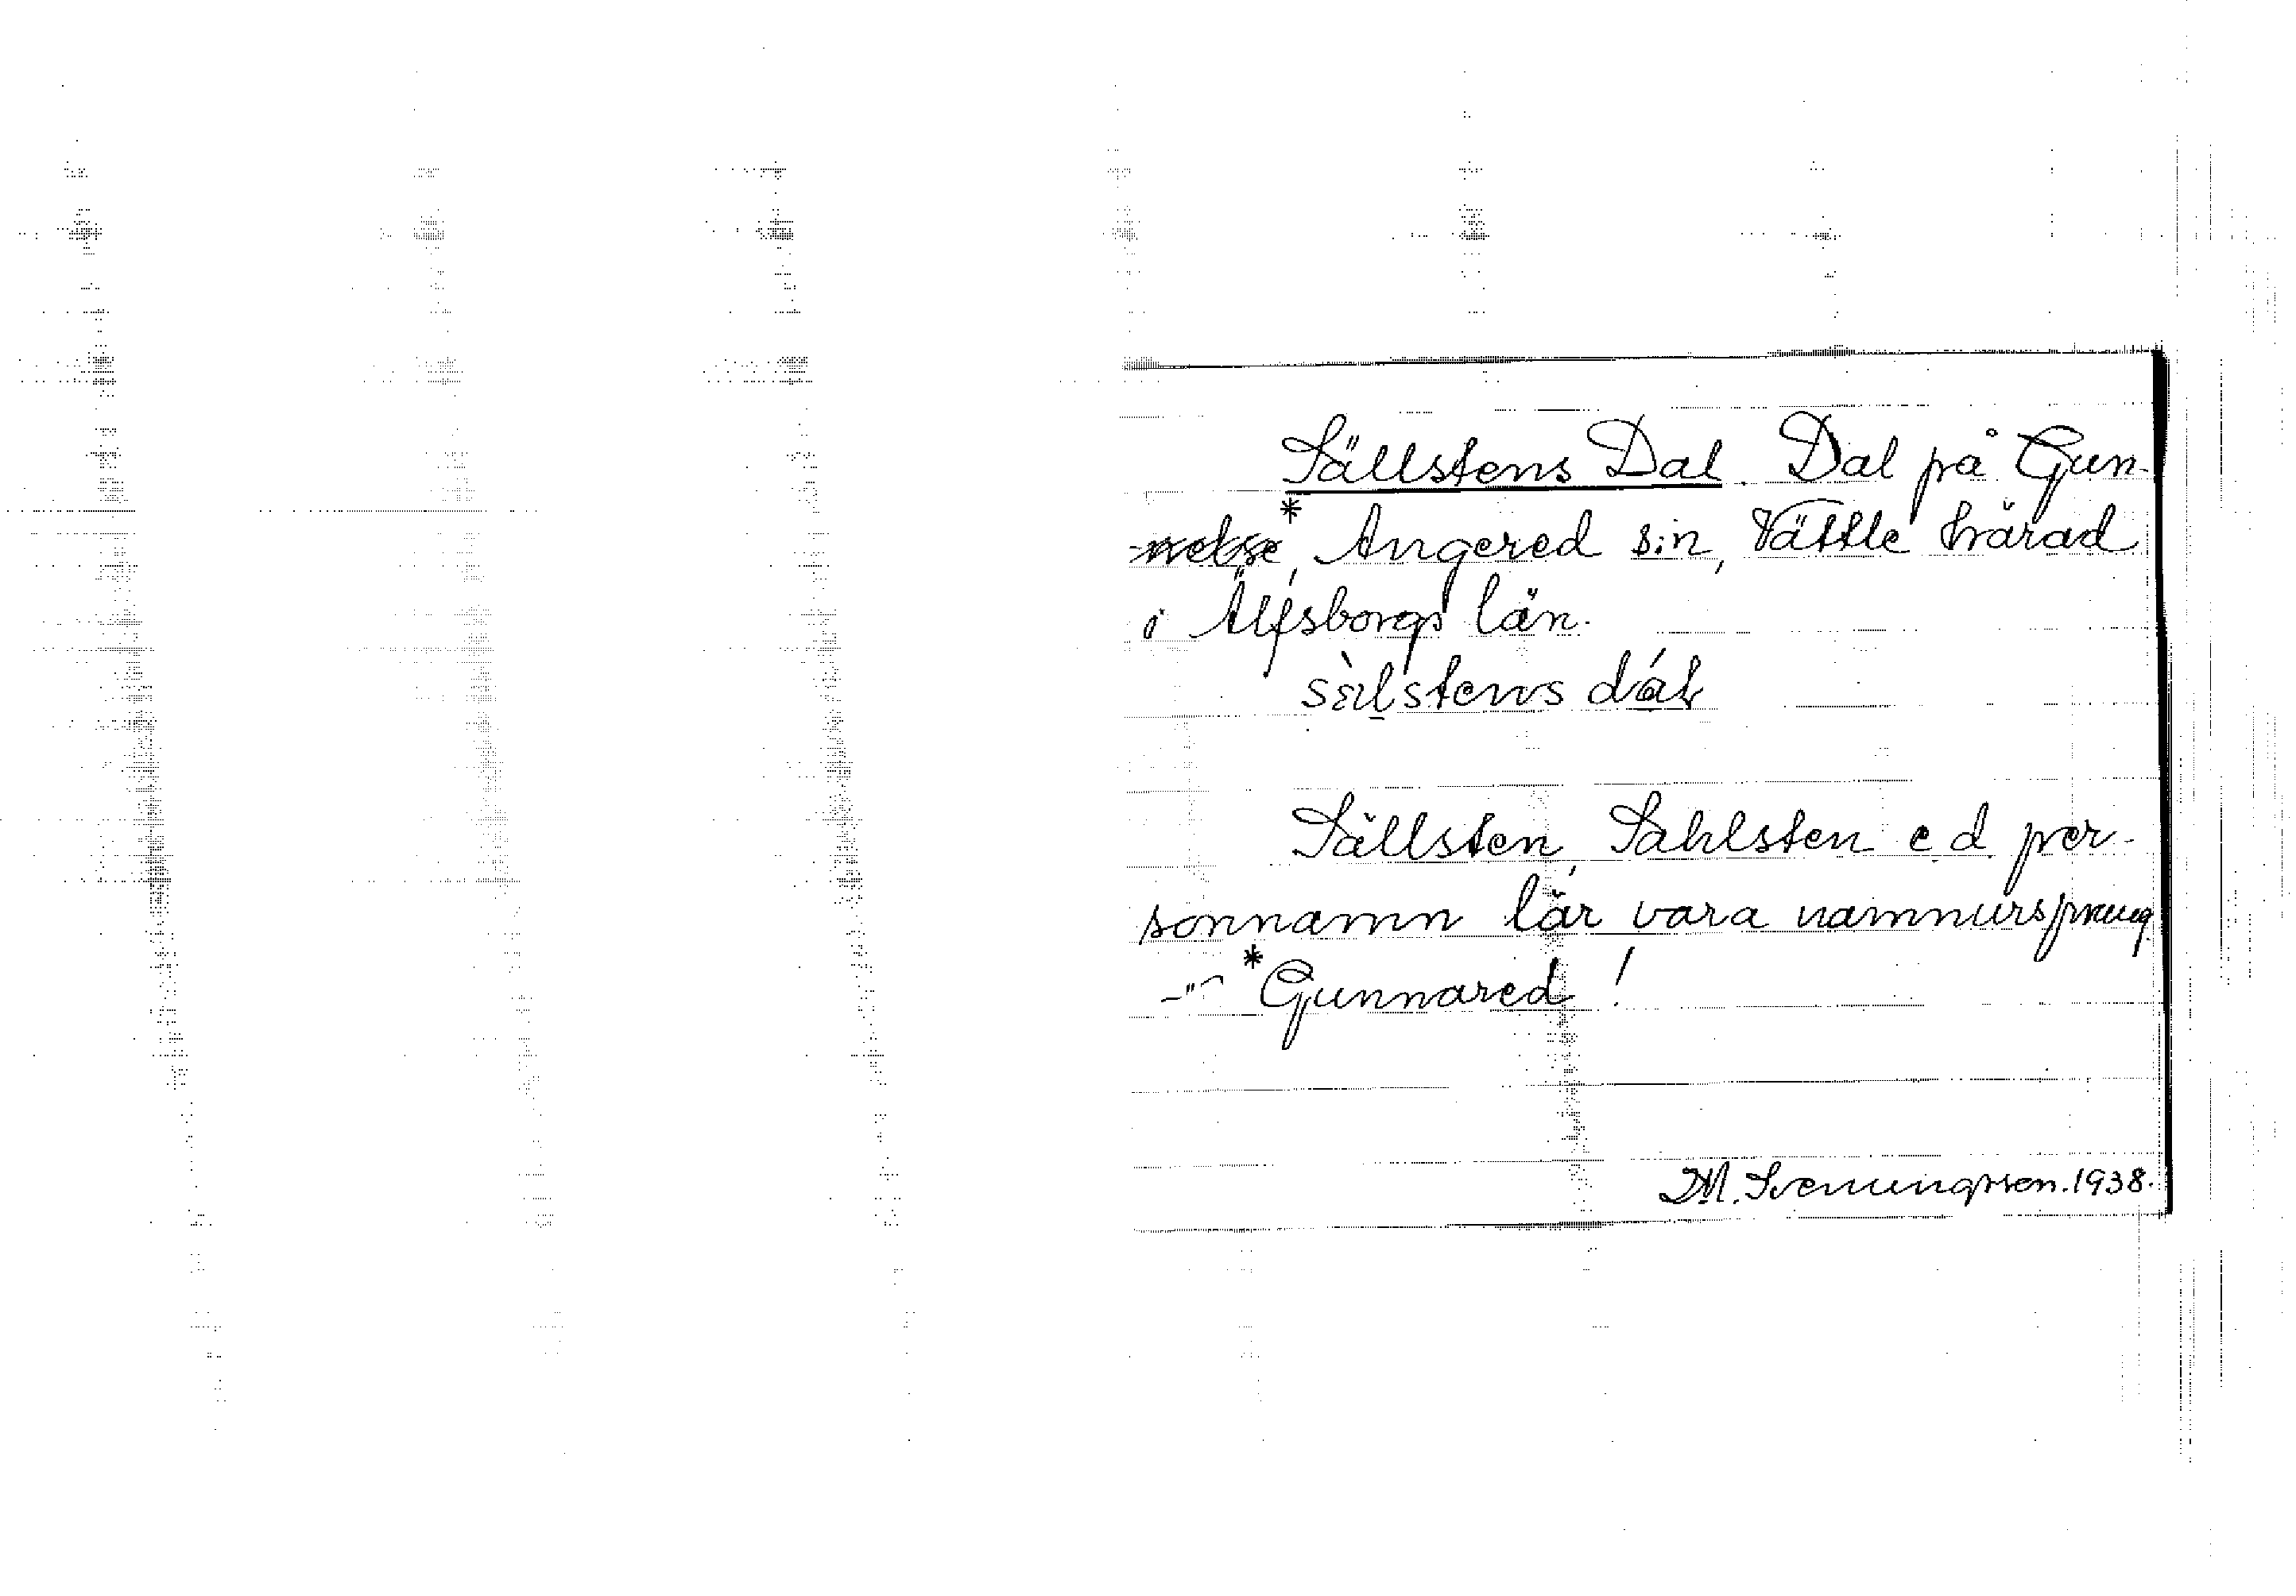 Sällstens Dal. Dal på Gun-
* Angered s:n, Vättle härad
i Älfsborgs län.
sälstens dál
Sällsten, Sahlsten e d per-
sonnamn lär vara namnursprung.
-"- *Gunnared!
D.M. Svenungsson. 1938.